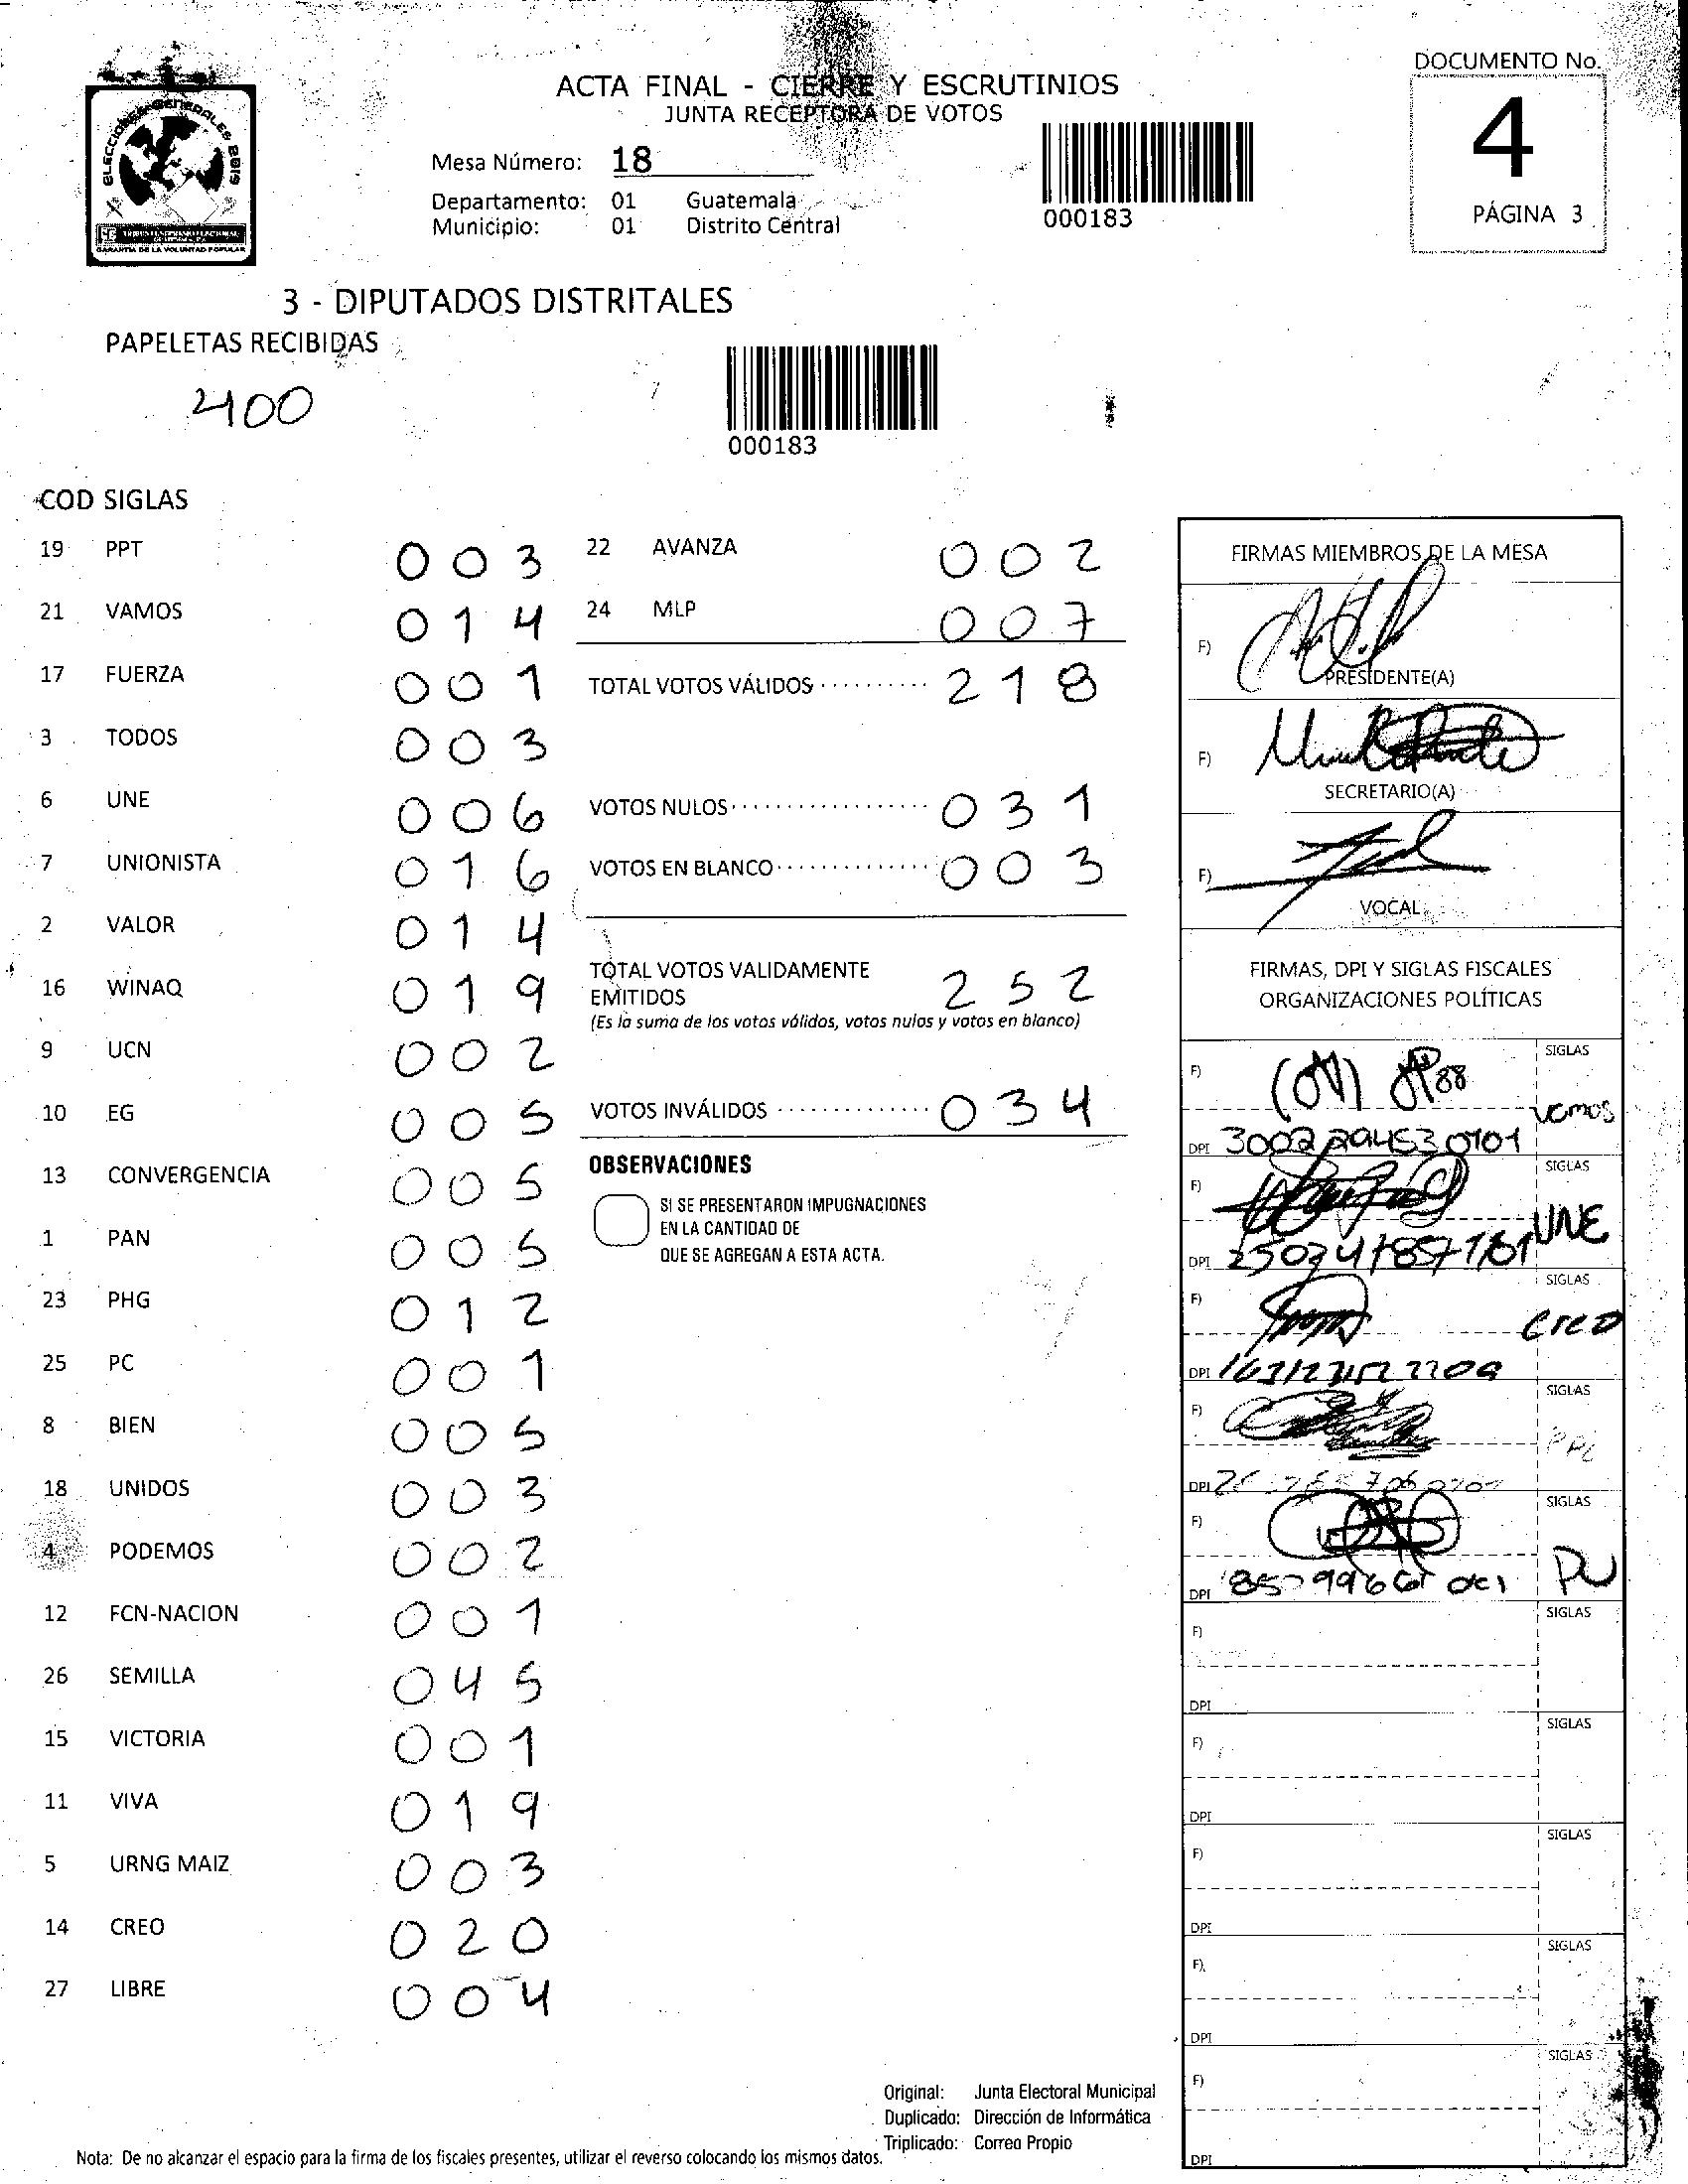 ELECCIONES GENERALES 2019
GARANTIA DE LA VOLUNTAD POPULAR
ACTA FINAL - CIERRE Y ESCRUTINIOS
JUNTA RECEPTORA DE VOTOS
Mesa Número: 18
Departamento: 01 Guatemala
Municipio: 01 Distrito Central
000183
DOCUMENTO No.
4
PÁGINA 3
3 - DIPUTADOS DISTRITALES
PAPELETAS RECIBIDAS
400
000183
COD SIGLAS
19 PPT 003
21 VAMOS 014
17 FUERZA 001
3 TODOS 003
6 UNE 006
7 UNIONISTA 016
2 VALOR 014
16 WINAQ 019
9 UCN 002
10 EG 005
13 CONVERGENCIA 005
1 PAN 005
23 PHG 012
25 PC 001
8 BIEN 005
18 UNIDOS 003
4 PODEMOS 002
12 FCN-NACION 001
26 SEMILLA 045
15 VICTORIA 001
11 VIVA 019
5 URNG MAIZ 003
14 CREO 020
27 LIBRE 004
22 AVANZA 002
24 MLP 007
TOTAL VOTOS VÁLIDOS .......... 218
VOTOS NULOS ................ 031
VOTOS EN BLANCO .............. 003
TOTAL VOTOS VALIDAMENTE
EMITIDOS 252
(Es la suma de los votos válidos, votos nulos y votos en blanco)
VOTOS INVÁLIDOS .............. 034
OBSERVACIONES
SI SE PRESENTARON IMPUGNACIONES
EN LA CANTIDAD DE
QUE SE AGREGAN A ESTA ACTA.
FIRMAS MIEMBROS DE LA MESA
F)
PRESIDENTE(A)
F)
SECRETARIO(A)
F)
VOCAL
FIRMAS, DPI Y SIGLAS FISCALES
ORGANIZACIONES POLÍTICAS
F) SIGLAS
vamos
DPI 3002294530101
F) SIGLAS
UNE
DPI
F) SIGLAS
creo
DPI
F) SIGLAS
DPI
F) SIGLAS
PU
DPI
F) SIGLAS
DPI
F) SIGLAS
DPI
F) SIGLAS
DPI
F) SIGLAS
DPI
F) SIGLAS
DPI
Original: Junta Electoral Municipal
Duplicado: Dirección de Informática
Triplicado: Correo Propio
Nota: De no alcanzar el espacio para la firma de los fiscales presentes, utilizar el reverso colocando los mismos datos.